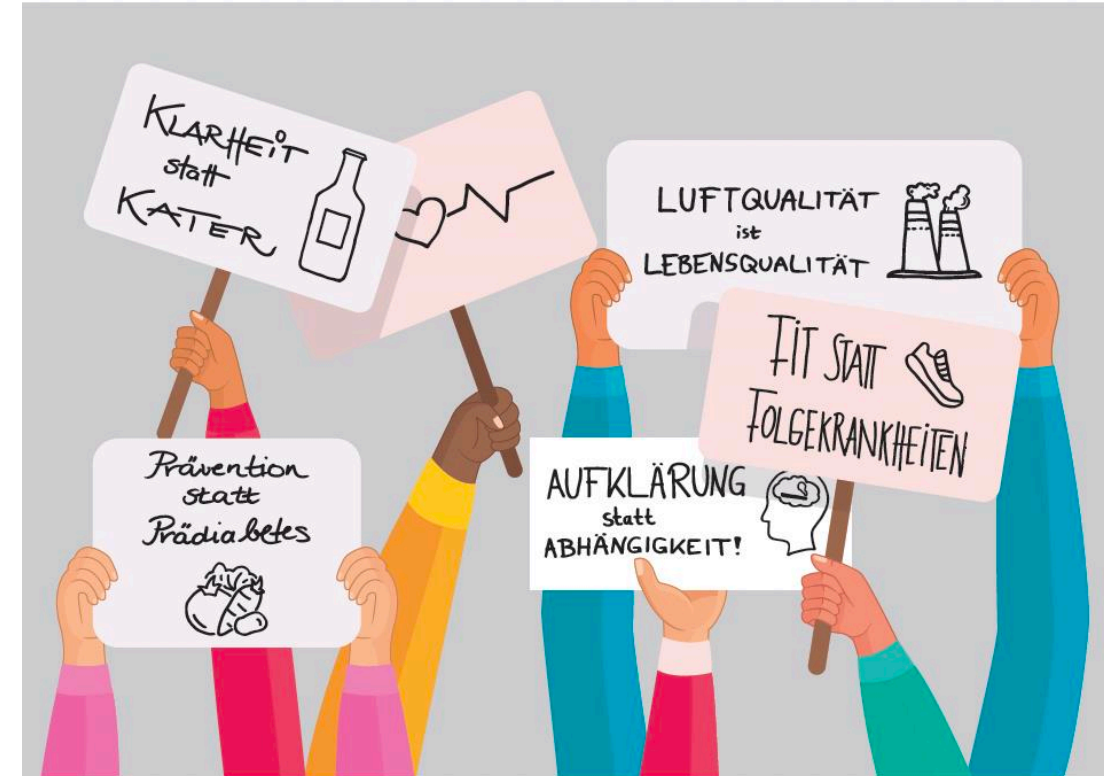 KLARHEIT
statt
KATER
LUFTQUALITÄT
ist
LEBENSQUALITÄT
FIT STATT
FOLGEKRANKHEITEN
Prävention
statt
Prädiabetes
AUFKLÄRUNG
statt
ABHÄNGIGKEIT!